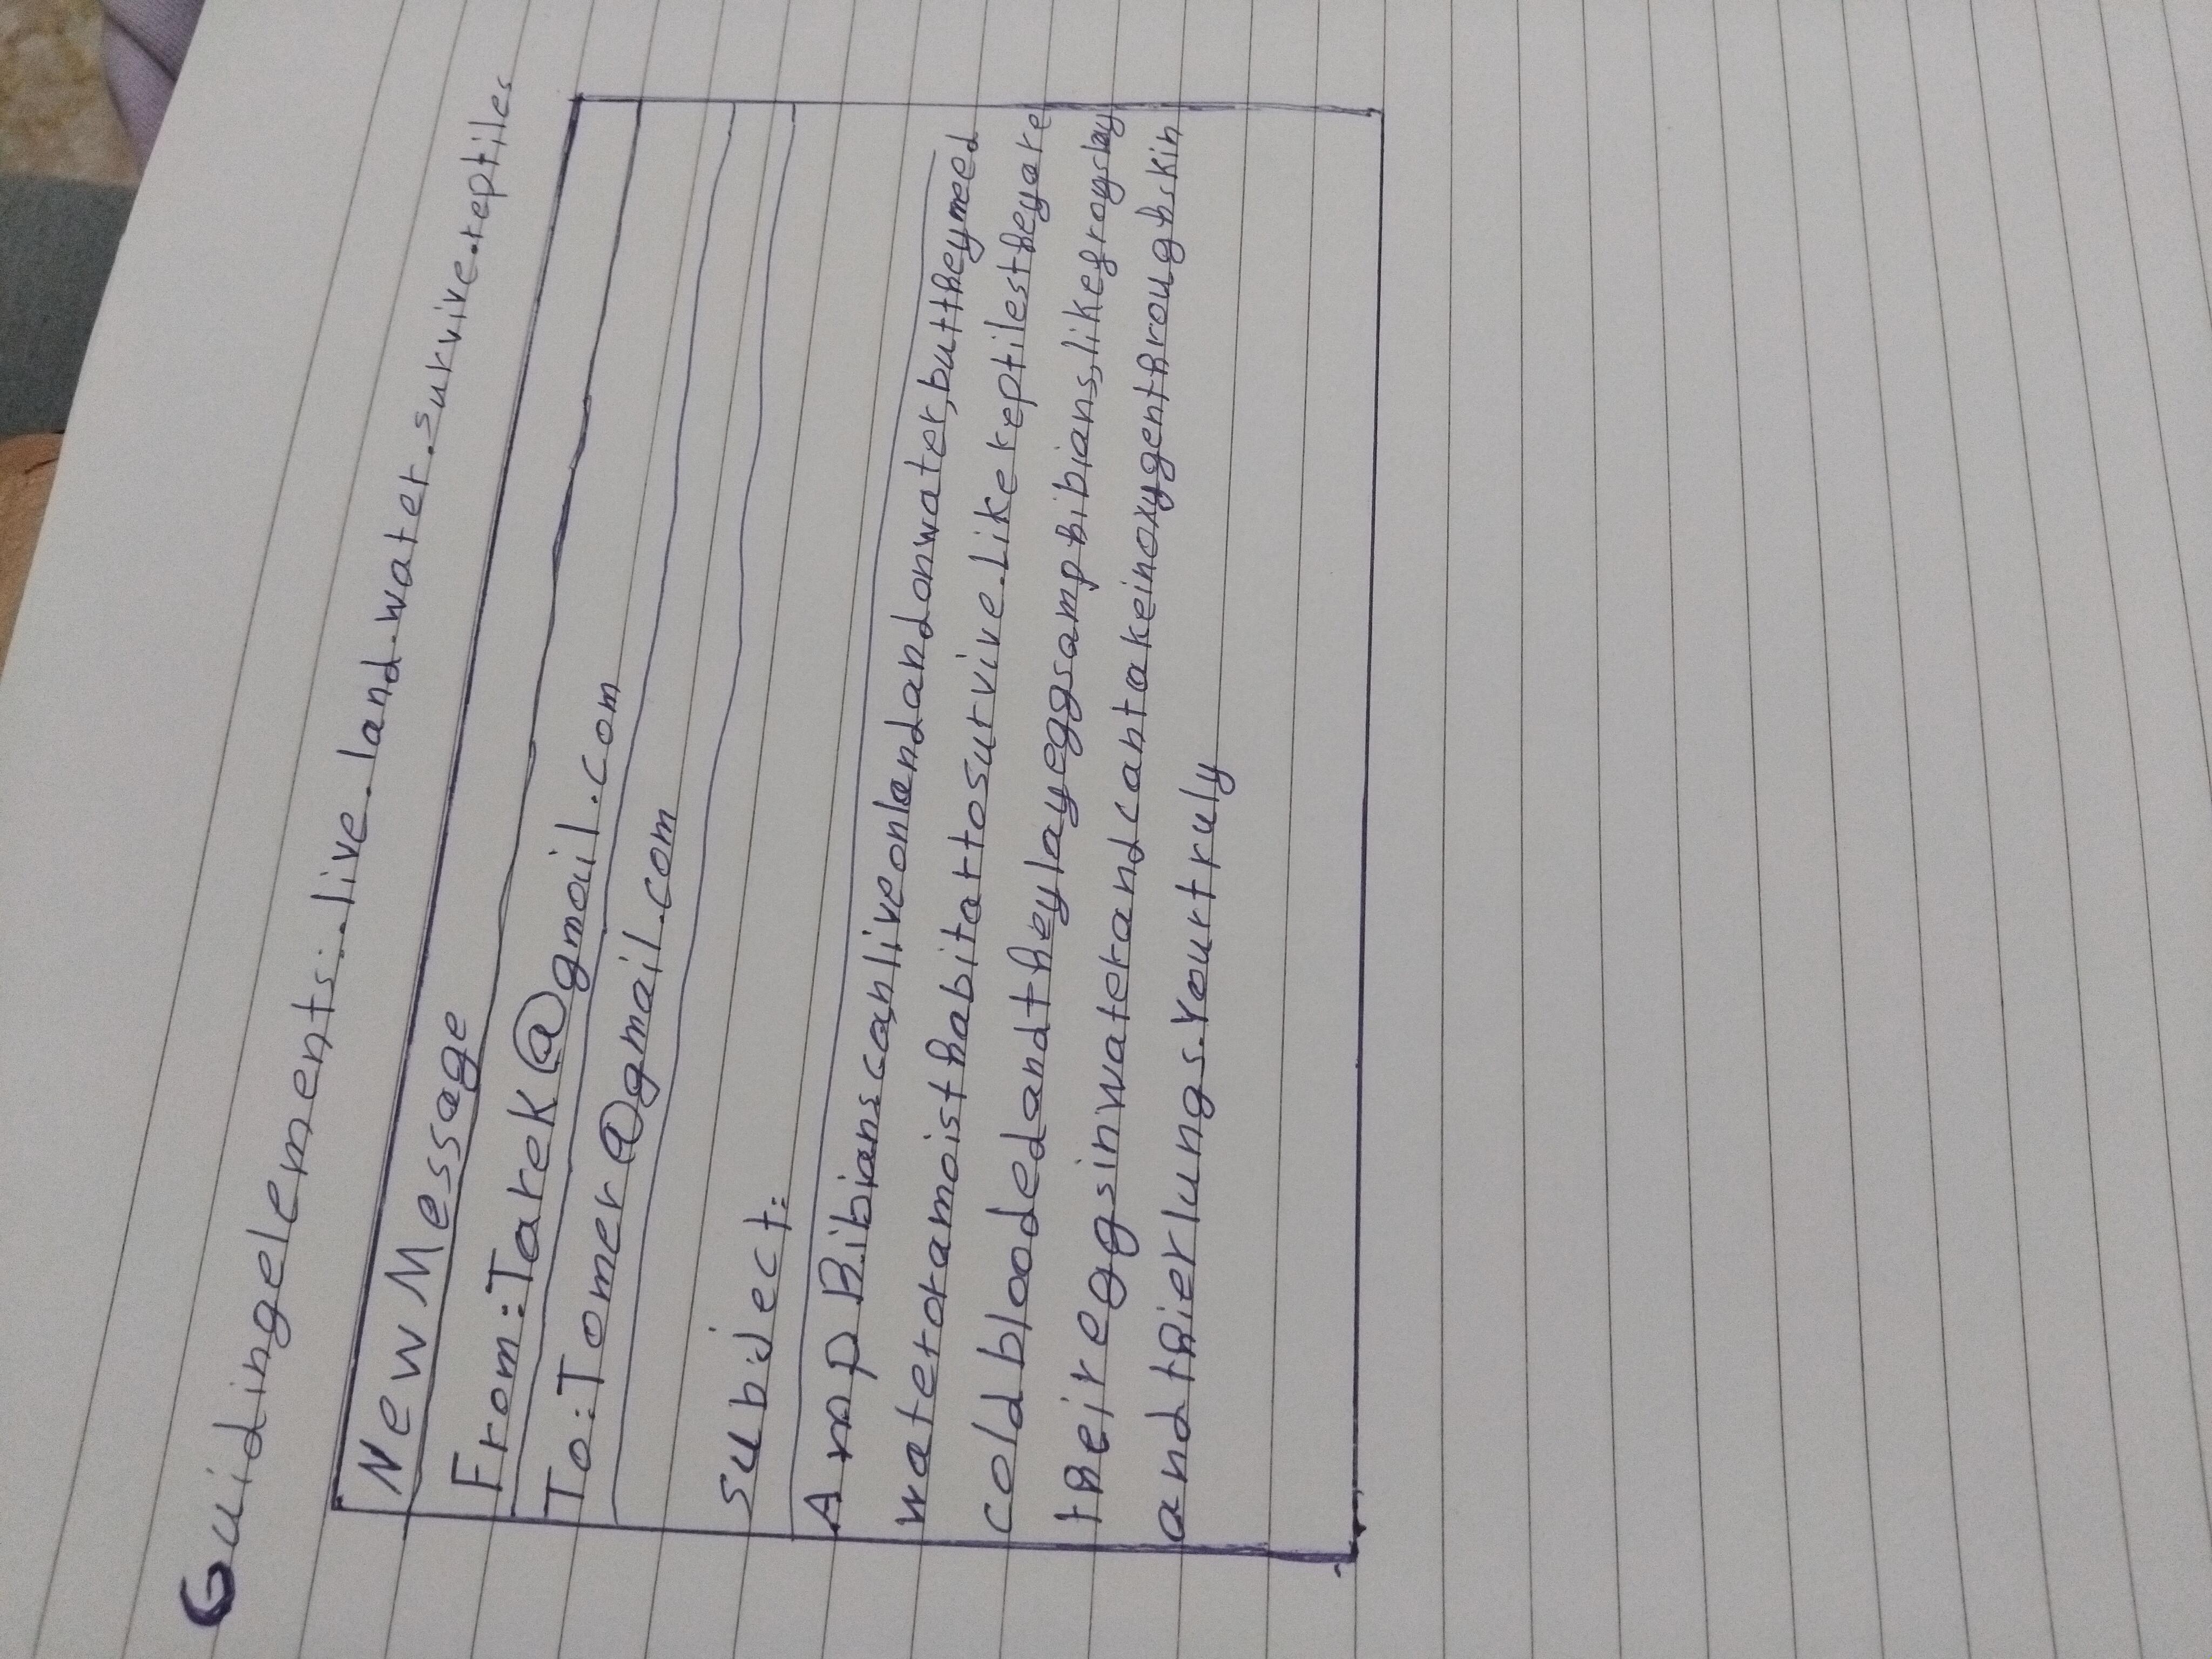 Guiding elements:.live.land.water.survive.reptiles
New Message
From:Tarek@gmail.com
To:Tomer@gmail.com
subject:
Amphibians can live on land and on water, but they meed
water or a moist habitat to survive. Like reptiles they are
cold blooded and they lay eggs amphibians, like frogs lay
their eggs in water and can take in oxygen through skin
and thier lungs. Your truly